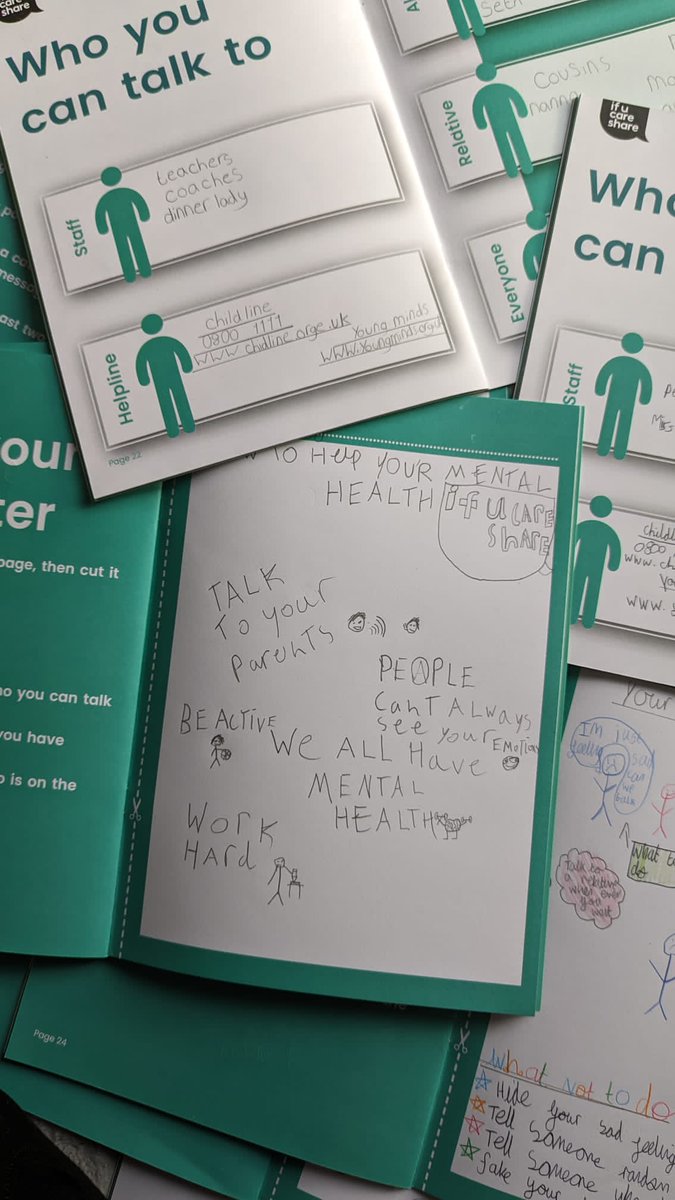 care
share
Who you
can talk to
Staff
teachers
coaches
dinner lady
Helpline
child line
0800 1111
www.chidline.orge.uk
Young minds
www.Youngminds.org.u
Page 22
Relative
Cousins
nanna
Everyone
if u
care
share
Who
can
Staff
0800
www.ch
yo
www.
our
ter
page, then cut it
o you can talk
ou have
o is on the
TO HElp YOUR MENTAL
HEALTH
i-f U CARE
SHARE
TALK
To your
Parents
PEOPLE
Cant Always
see your EMOTION
BE ACTIVE
WE All HAVE
MENTAL
HEALTH
WORK
HARd
Page 24
Your
I'm just
feeling sad
can
we
talk
What to
do
Talk to
a relative
when ever
you
want
What not to do
Hide your sad feeling
Tell someone random
Tell someone who
fake your